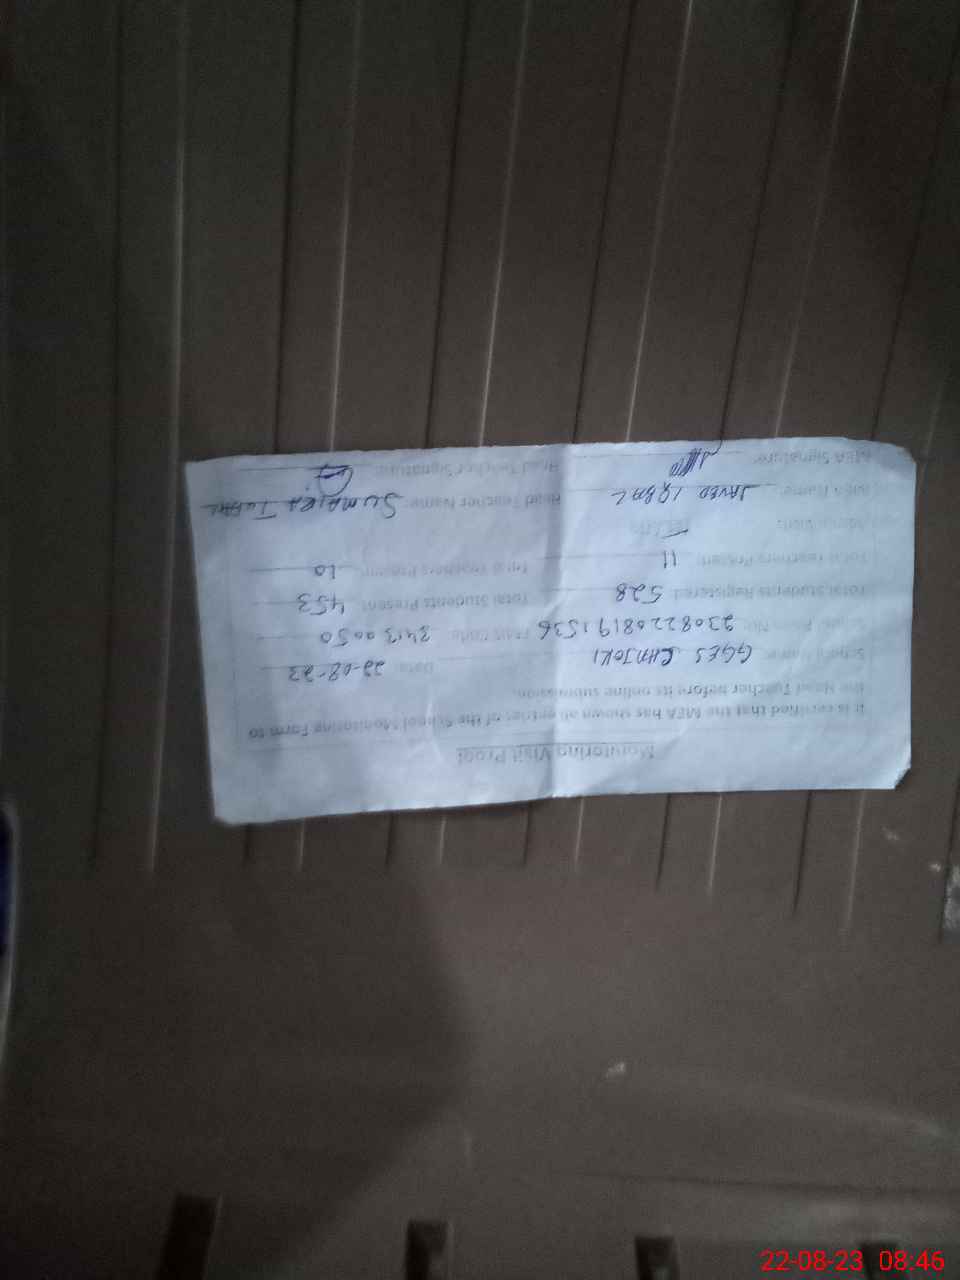 Monitoring Visit Proof
It is certified that the MEA has shown all entries of the School Monitoring Form to
the Head Teacher before its online submission.
School Name: GGES CHNJOKI Date: 22-08-23
No: 23082208191536 Code: 34130050
Total Students Registered: 528 Total Students Present: 453
Total Teachers Posted: 11 Total Teachers Present: 10
MEA Name: JAVED IQBAL Head Teacher Name: SUMAIRA IQBAL
MEA Signature: Head Teacher Signature:
22-08-23 08:46